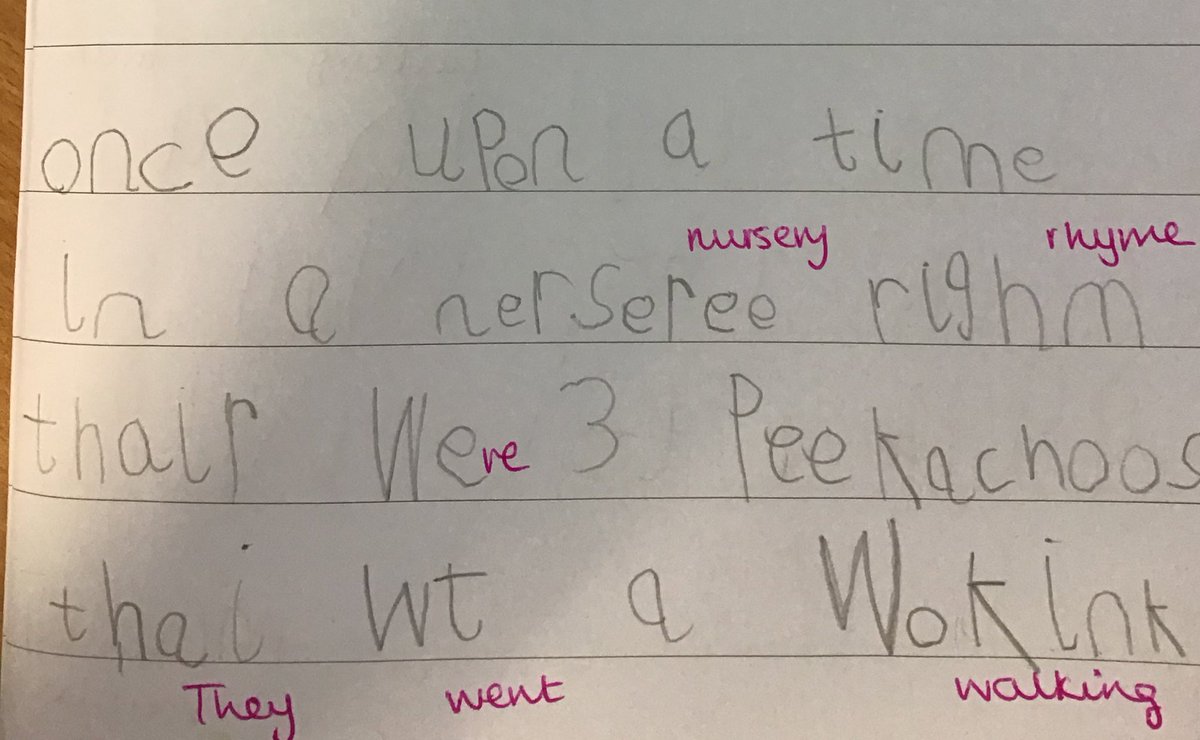 once upon a time
nursery rhyme
In a nerseree righm
thair Were 3 Peekachoos
thai Wt a Wokink
They went walking